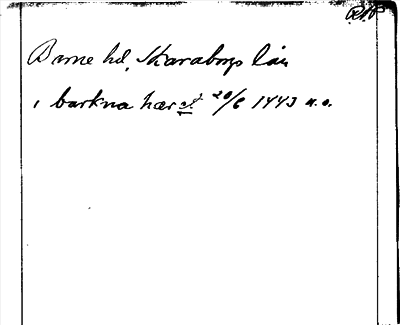 Barne hd, Skaraborgs län
i barkna hæret 20/6 1443 n.o.